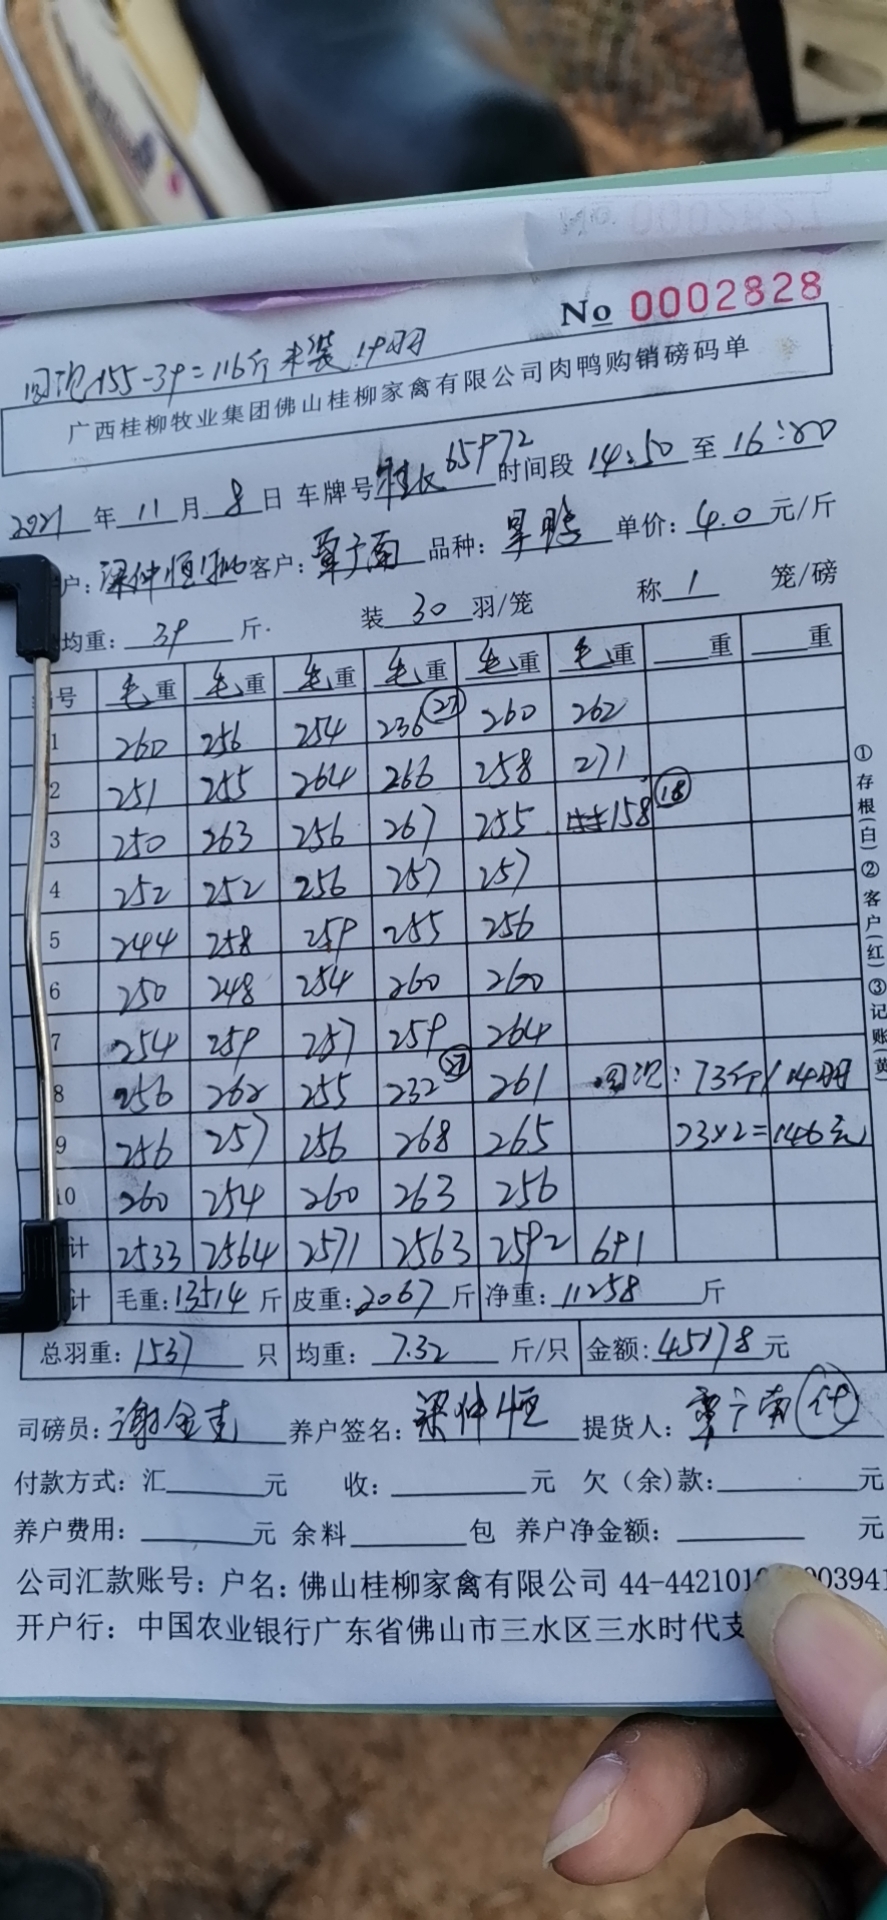 No 0002828
155-39=116斤 未装 19羽
广西桂柳牧业集团佛山桂柳家禽有限公司肉鸭购销磅码单
2021 年 11 月 8 日 车牌号 65972 时间段 14:50 至 16:20
户: 梁仲恒 客户: 覃广南 品种: 单价: 4.0 元/斤
均重: 39 斤. 装 30 羽/笼 称 1 笼/磅
编号 毛重 毛重 毛重 毛重 毛重 毛重 重 重
1 260 256 254 236 (27) 260 262
2 251 255 264 266 258 271
3 250 263 256 267 255 158 (18)
4 252 252 256 257 257
5 244 258 259 255 256
6 250 248 254 260 260
7 254 259 257 259 264
8 256 262 255 232 (27) 261 : 73斤/14羽
9 256 257 256 268 265 73×2=146元
10 260 254 260 263 256
计 2533 2564 2571 2563 2592 691
计 毛重: 13514 斤 皮重: 2067 斤 净重: 11258 斤
总羽重: 1537 只 均重: 7.32 斤/只 金额: 45178 元
司磅员: 谢金 养户签名: 梁仲恒 提货人: 覃广南 (代)
付款方式: 汇 元 收: 元 欠(余)款: 元
养户费用: 元 余料 包 养户净金额: 元
公司汇款账号: 户名: 佛山桂柳家禽有限公司 44-442101 003941
开户行: 中国农业银行广东省佛山市三水区三水时代支
①存根(白)②客户(红)③记账(黄)